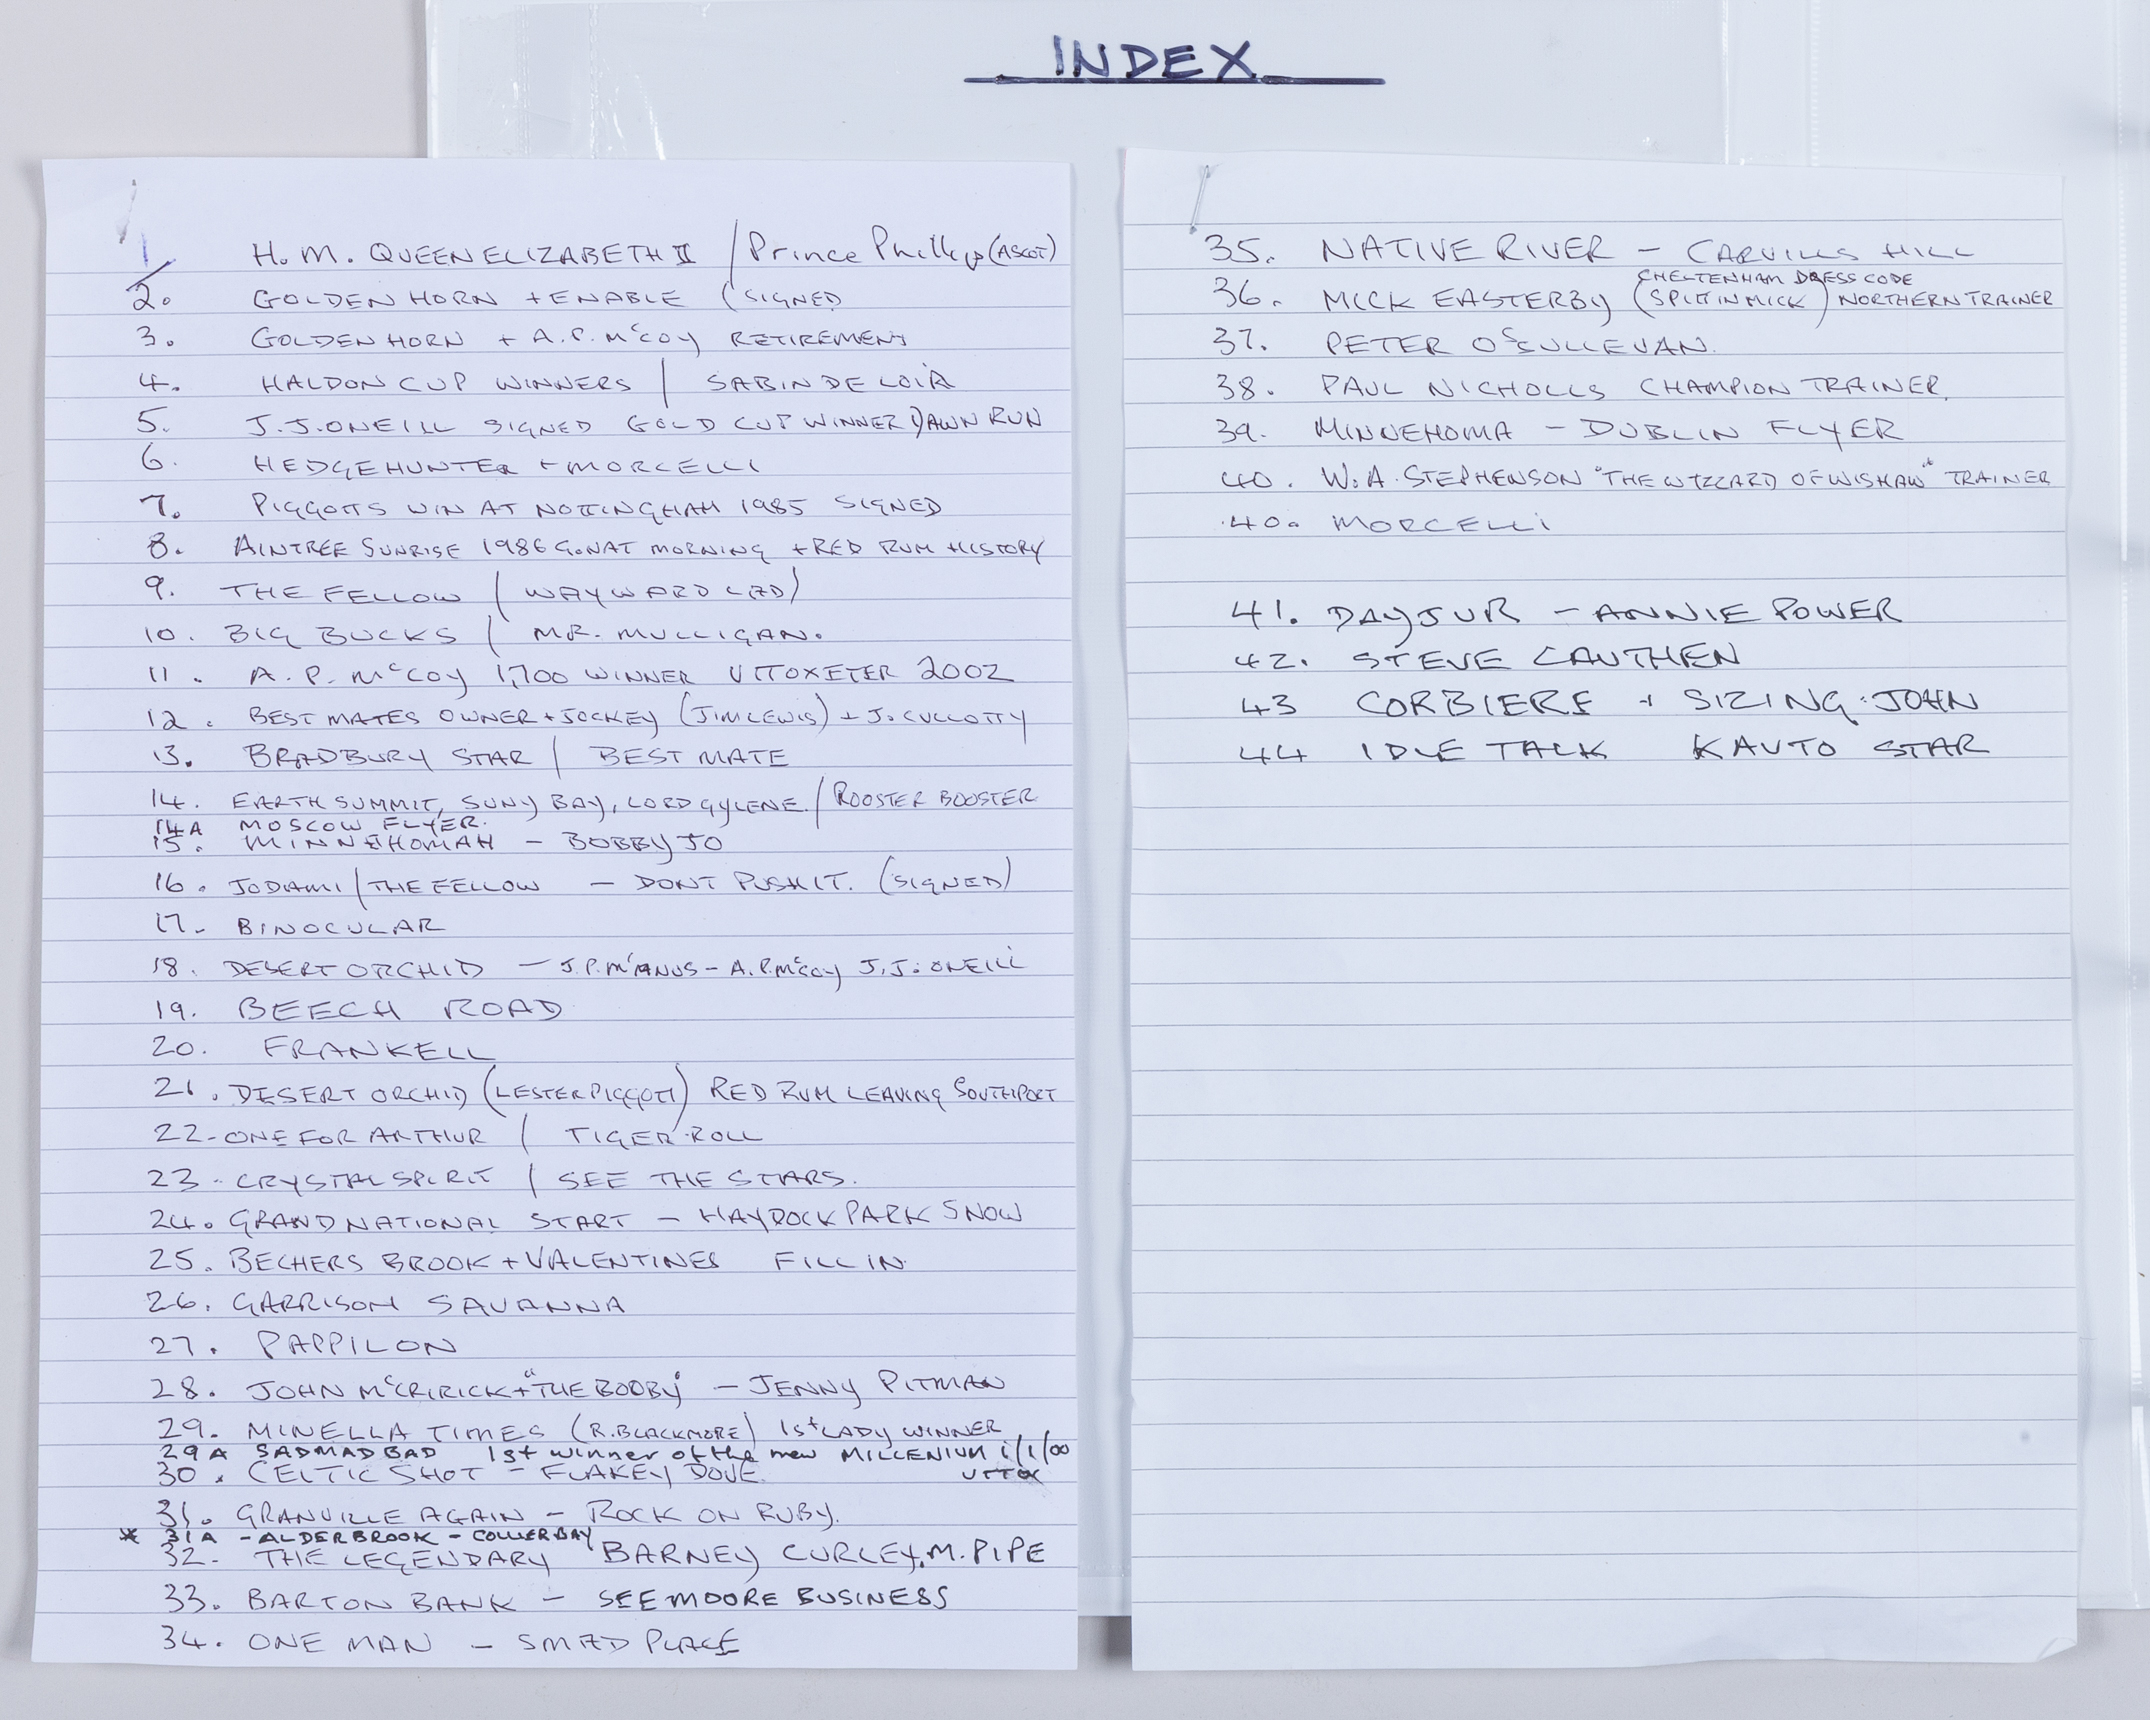 INDEX
1 H. M. QUEEN ELIZABETH II / Prince Phillip (ASCOT)
2. GOLDEN HORN + ENABLE (SIGNED
3. GOLDEN HORN + A. P. McCOY RETIREMENT
4. HALDON CUP WINNERS / SABIN DE LOIR
5. J. J. ONEILL SIGNED GOLD CUP WINNER DAWN RUN
6. HEDGEHUNTER + MORCELLI
7. PIGGOTTS WIN AT NOTTINGHAM 1985 SIGNED
8. AINTREE SUNRISE 1986 G. NAT MORNING + RED RUM HISTORY
9. THE FELLOW / WAYWARD LAD)
10. BIG BUCKS / MR. MULLIGAN.
11. A. P. McCOY 1,700 WINNER UTTOXETER 2002
12. BEST MATES OWNER + JOCKEY (JIM LEWIS) + J. CULLOTTY
13. BRADBURY STAR / BEST MATE
14. EARTH SUMMIT, SUNY BAY, LORD GYLENE. / ROOSTER BOOSTER
14A MOSCOW FLYER.
15. MINNEHOMAH - BOBBY JO
16. JODAMI / THE FELLOW - DONT PUSH IT. (SIGNED)
17. BINOCULAR
18. DESERT ORCHID - J. P. McMANUS - A. P. McCoy J. J. ONEILL
19. BEECH ROAD
20. FRANKELL
21. DESERT ORCHID (LESTER PIGGOTT) RED RUM LEAVING SOUTHPORT
22- ONE FOR ARTHUR / TIGER ROLL
23. CRYSTAL SPIRIT / SEE THE STARS.
24. GRAND NATIONAL START - HAYDOCK PARK SNOW
25. BECHERS BROOK + VALENTINES FILL IN
26. GARRISON SAVANNA
27. PAPPILON
28. JOHN McCRIRICK + "THE BOOBY" - JENNY PITMAN
29. MINELLA TIMES (R. BLACKMORE) 1st LADY WINNER
29A SADMADBAD 1st winner of the new MILLENIUM 1/1/00
UTTOX
30. CELTIC SHOT - FLAKEY DOVE.
31. GRANVILLE AGAIN - ROCK ON RUBY.
* 31A - ALDERBROOK - COLLIER BAY
32. THE LEGENDARY BARNEY CURLEY. M. PIPE
33. BARTON BANK - SEE MOORE BUSINESS
34. ONE MAN - SMAD PLACE
35. NATIVE RIVER - CARVILLS HILL
CHELTENHAM DRESS CODE
36. MICK EASTERBY (SPIT IN MICK) NORTHERN TRAINER
37. PETER O'SULLEVAN.
38. PAUL NICHOLLS CHAMPION TRAINER.
39. MINNEHOMA - DUBLIN FLYER
40. W. A. STEPHENSON "THE WIZZARD OF WISHAW" TRAINER
40. MORCELLI
41. DAYJUR - ANNIE POWER
42. STEVE CAUTHEN
43 CORBIERE + SIZING JOHN
44 IDLE TALK KAUTO STAR